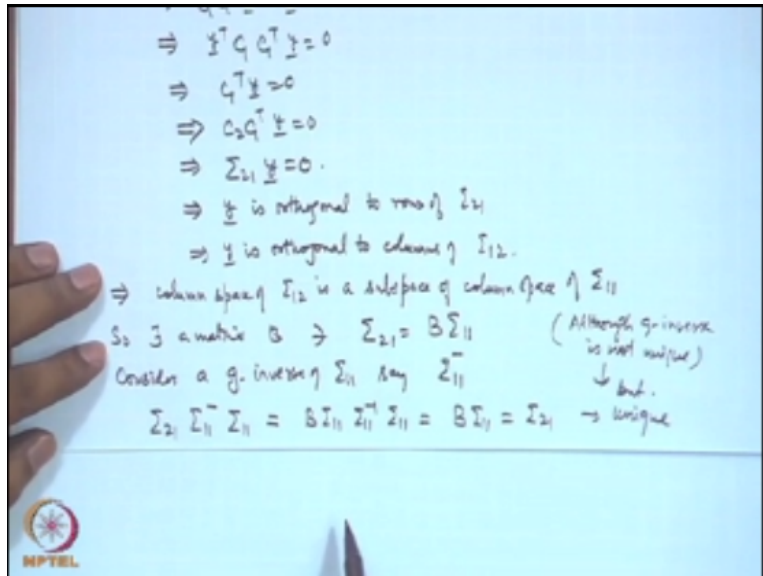 ⇒ y^T C₁ C₁^T y = 0
⇒ C₁^T y = 0
⇒ C₂ C₁^T y = 0
⇒ Σ₂₁ y = 0.
⇒ y is orthogonal to rows of Σ₂₁
⇒ y is orthogonal to columns of Σ₁₂.
⇒ column space of Σ₁₂ is a subspace of column space of Σ₁₁
So ∃ a matrix B ∋ Σ₂₁ = B Σ₁₁ (Although g-inverse is not unique)
Consider a g-inverse of Σ₁₁ say Σ₁₁⁻ ↓ but.
Σ₂₁ Σ₁₁⁻ Σ₁₁ = B Σ₁₁ Σ₁₁⁻ Σ₁₁ = B Σ₁₁ = Σ₂₁ → unique
NPTEL